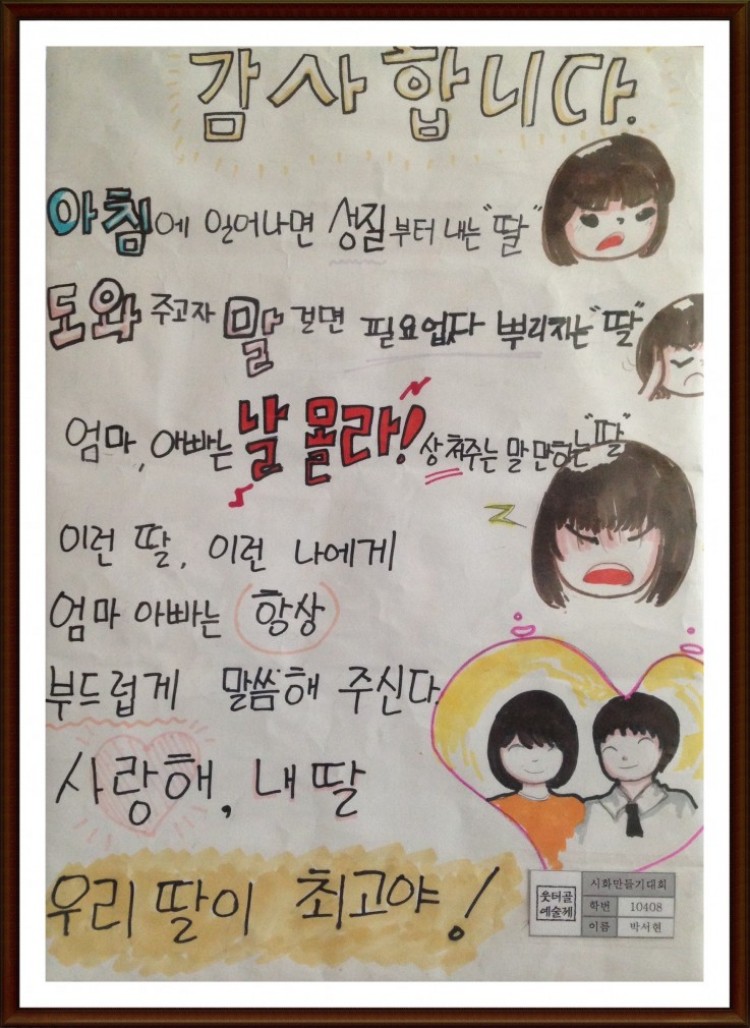 감사합니다.
아침에 일어나면 성질부터 내는 "딸"
도와 주고자 말 걸면 필요없다 뿌리치는 "딸"
엄마, 아빠는 날 몰라! 상처주는 말만하는 "딸"
이런 딸, 이런 나에게
엄마 아빠는 항상
부드럽게 말씀해 주신다.
사랑해, 내 딸
우리 딸이 최고야!
웃터골
예술제
시화만들기대회
학번 10408
이름 박서현